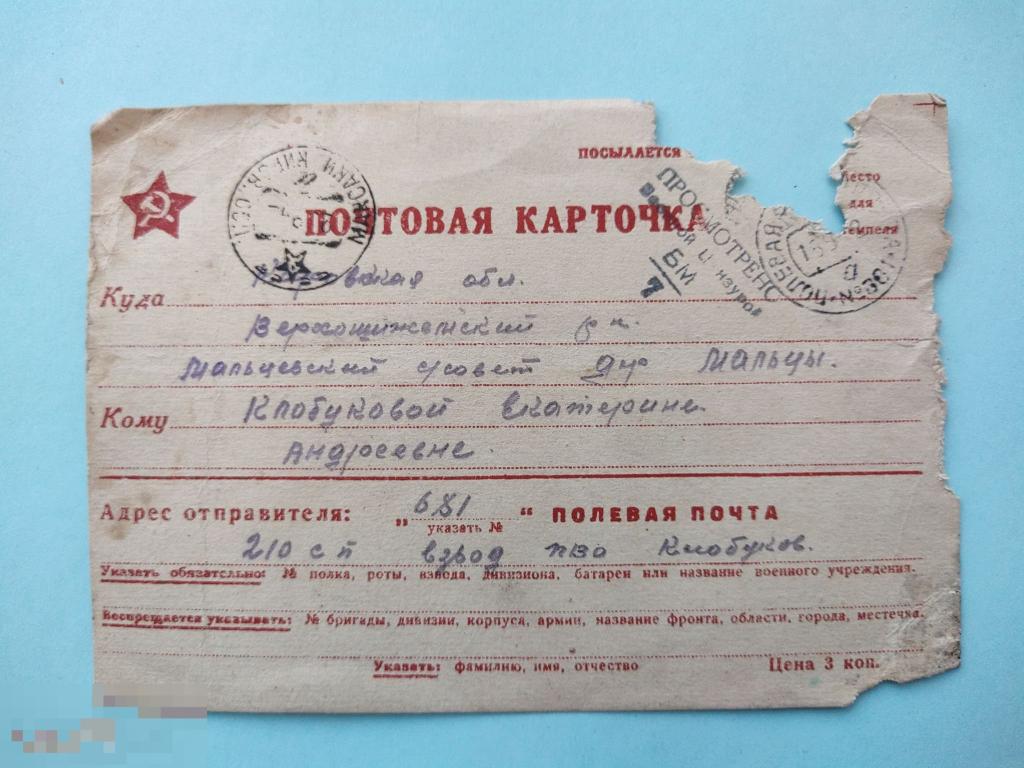 ПОСЫЛАЕТСЯ
Место
для
штемпеля
ПОЧТОВАЯ КАРТОЧКА
ПРОСМОТРЕНО
Военной Цензурой
БМ
7
ПОЛЕВАЯ
Куда Кировская обл.
Верхошижемский р-н.
Мальцевский с/совет дер Мальцы.
Кому Клобуковой Екатерине
Андреевне.
Адрес отправителя: „681“ ПОЛЕВАЯ ПОЧТА
указать №
210 с п взвод пво Клобуков.
Указать обязательно: № полка, роты, взвода, дивизиона, батареи или название военного учреждения.
Воспрещается указывать: № бригады, дивизии, корпуса, армии, название фронта, области, города, местечка.
Указать: фамилию, имя, отчество
Цена 3 коп.